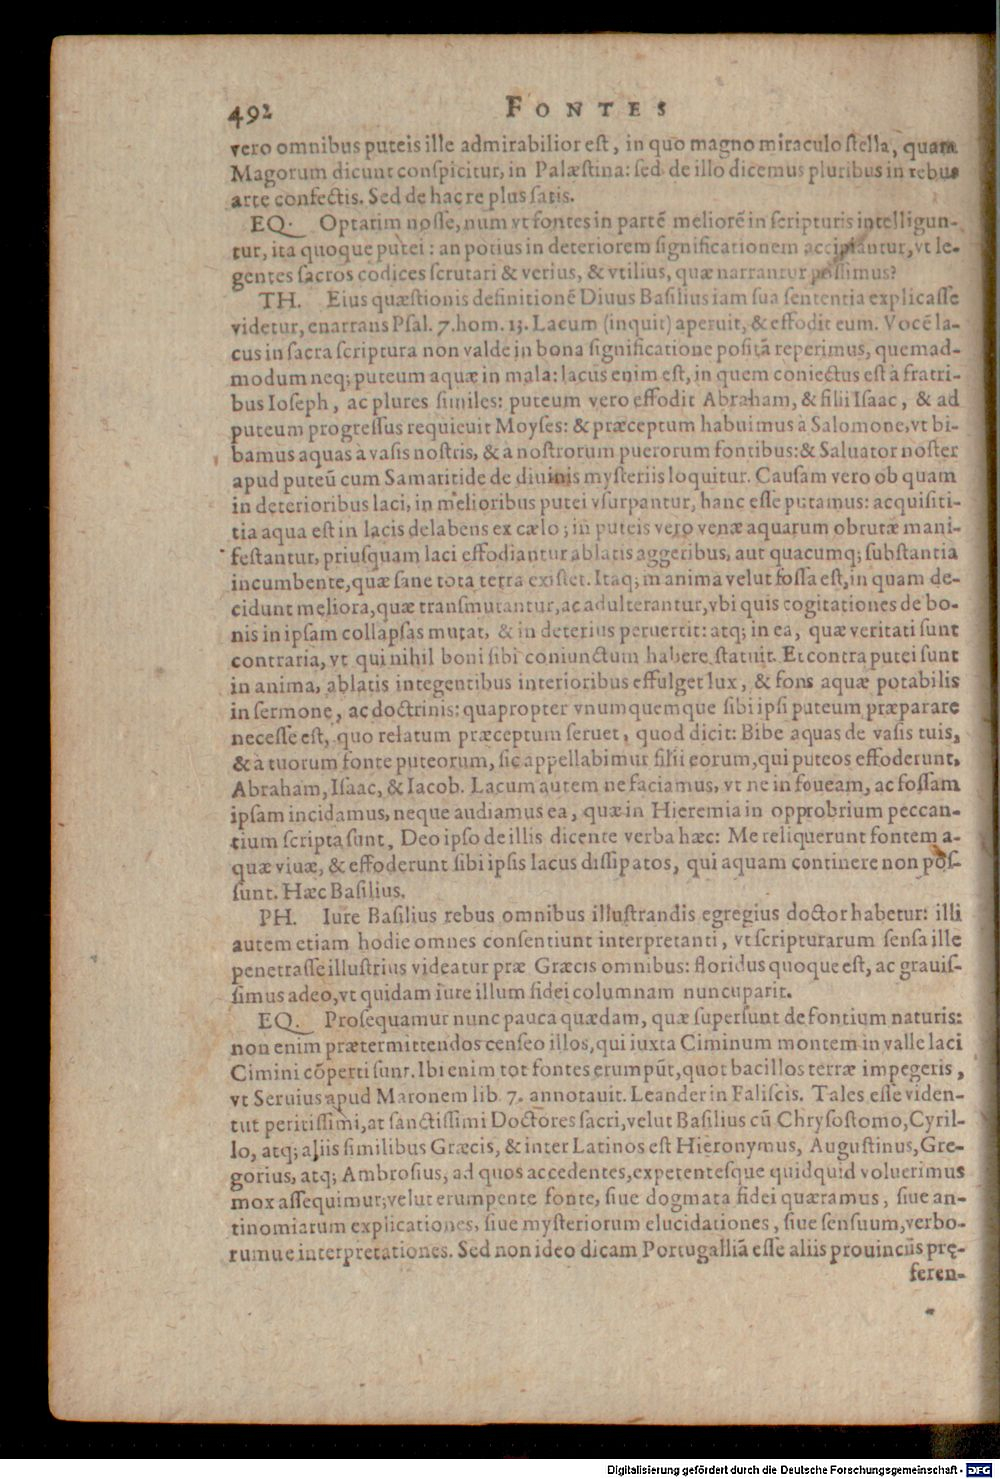 492 FONTES
vero omnibus puteis ille admirabilior est, in quo magno miraculo stella, quam
Magorum dicunt conspicitur, in Palæstina: sed de illo dicemus pluribus in rebus
arte confectis. Sed de hac re plus satis.
EQ. Optarim nosse, num vt fontes in partē meliorē in scripturis intelligun-
tur, ita quoque putei: an potius in deteriorem significationem accipiantur, vt le-
gentes sacros codices scrutari & verius, & vtilius, quæ narrantur possimus?
TH. Eius quæstionis definitionē Diuus Basilius iam sua sententia explicasse
videtur, enarrans Psal. 7. hom. 13. Lacum (inquit) aperuit, & effodit eum. Vocē la-
cus in sacra scriptura non valde in bona significatione positā reperimus, quemad-
modum neq; puteum aquæ in mala: lacus enim est, in quem coniectus est à fratri-
bus Ioseph, ac plures similes: puteum vero effodit Abraham, & filii Isaac, & ad
puteum progressus requieuit Moyses: & præceptum habuimus à Salomone, vt bi-
bamus aquas à vasis nostris, & à nostrorum puerorum fontibus: & Saluator noster
apud puteū cum Samaritide de diuinis mysteriis loquitur. Causam vero ob quam
in deterioribus laci, in melioribus putei vsurpantur, hanc esse putamus: acquisiti-
tia aqua est in lacis delabens ex cælo; in puteis vero venæ aquarum obrutæ mani-
festantur, priusquam laci effodiantur ablatis aggeribus, aut quacumq; substantia
incumbente, quæ sane tota terra existet. Itaq; in anima velut fossa est, in quam de-
cidunt meliora, quæ transmutantur, ac adulterantur, vbi quis cogitationes de bo-
nis in ipsam collapsas mutat, & in deterius peruertit: atq; in ea, quæ veritati sunt
contraria, vt qui nihil boni sibi coniunctum habere statuit. Et contra putei sunt
in anima, ablatis integentibus interioribus effulget lux, & fons aquæ potabilis
in sermone, ac doctrinis: quapropter vnumquemque sibi ipsi puteum præparare
necesse est, quo relatum præceptum seruet, quod dicit: Bibe aquas de vasis tuis,
& à tuorum fonte puteorum, sic appellabimur filii eorum, qui puteos effoderunt,
Abraham, Isaac, & Iacob. Lacum autem ne faciamus, vt ne in foueam, ac fossam
ipsam incidamus, neque audiamus ea, quæ in Hieremia in opprobrium peccan-
tium scripta sunt, Deo ipso de illis dicente verba hæc: Me reliquerunt fontem a-
quæ viuæ, & effoderunt sibi ipsis lacus dissipatos, qui aquam continere non pos-
sunt. Hæc Basilius.
PH. Iure Basilius rebus omnibus illustrandis egregius doctor habetur: illi
autem etiam hodie omnes consentiunt interpretanti, vt scripturarum sensa ille
penetrasse illustrius videatur præ Græcis omnibus: floridus quoque est, ac grauis-
simus adeo, vt quidam iure illum fidei columnam nuncuparit.
EQ. Prosequamur nunc pauca quædam, quæ supersunt de fontium naturis:
non enim prætermittendos censeo illos, qui iuxta Ciminum montem in valle laci
Cimini cōperti sunt. Ibi enim tot fontes erumpūt, quot bacillos terræ impegeris,
vt Seruius apud Maronem lib 7. annotauit. Leander in Faliscis. Tales esse viden-
tut peritissimi, at sanctissimi Doctores sacri, velut Basilius cū Chrysostomo, Cyril-
lo, atq; aliis similibus Græcis, & inter Latinos est Hieronymus, Augustinus, Gre-
gorius, atq; Ambrosius, ad quos accedentes, expetentesque quidquid voluerimus
mox assequimur; velut erumpente fonte, siue dogmata fidei quæramus, siue an-
tinomiarum explicationes, siue mysteriorum elucidationes, siue sensuum, verbo-
rumue interpretationes. Sed non ideo dicam Portugalliā esse aliis prouinciis prę-
feren-
Digitalisierung gefördert durch die Deutsche Forschungsgemeinschaft - DFG